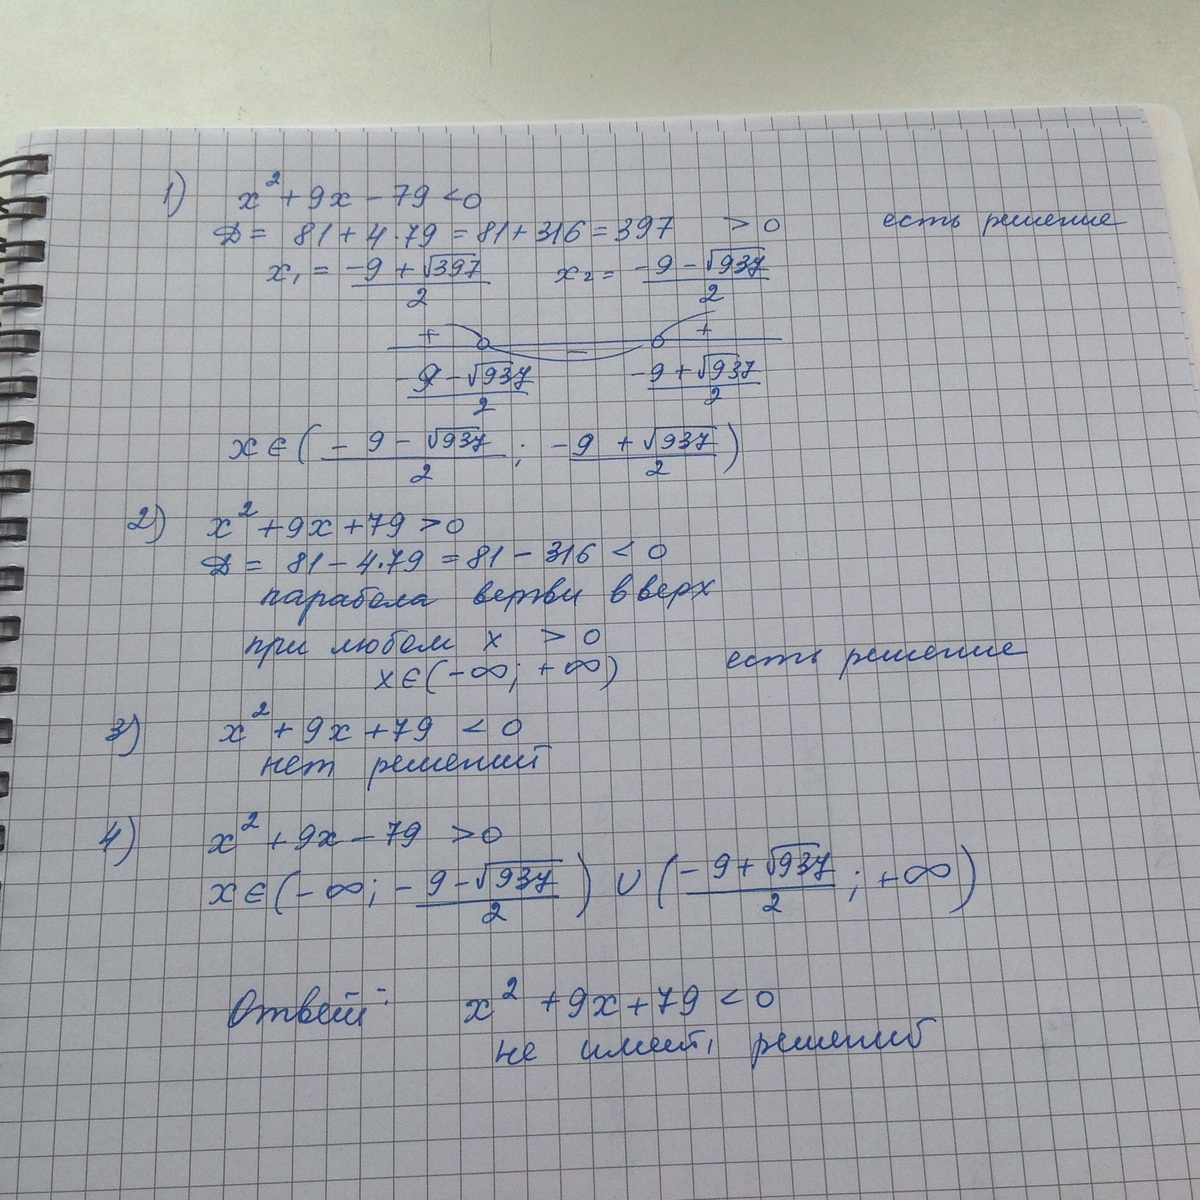 1) x² + 9x - 79 < 0
D = 81 + 4·79 = 81 + 316 = 397 > 0 есть решение
x₁ = (-9 + √397)/2 x₂ = (-9 - √937)/2
+ - +
(-9 - √937)/2 (-9 + √937)/2
x ∈ ((-9 - √937)/2 ; (-9 + √937)/2)
2) x² + 9x + 79 > 0
D = 81 - 4·79 = 81 - 316 < 0
парабола ветви вверх
при любом x > 0
x ∈ (-∞; +∞) есть решение
3) x² + 9x + 79 < 0
нет решений
4) x² + 9x - 79 > 0
x ∈ (-∞; (-9 - √937)/2) ∪ ((-9 + √937)/2 ; +∞)
Ответ: x² + 9x + 79 < 0
не имеет решений